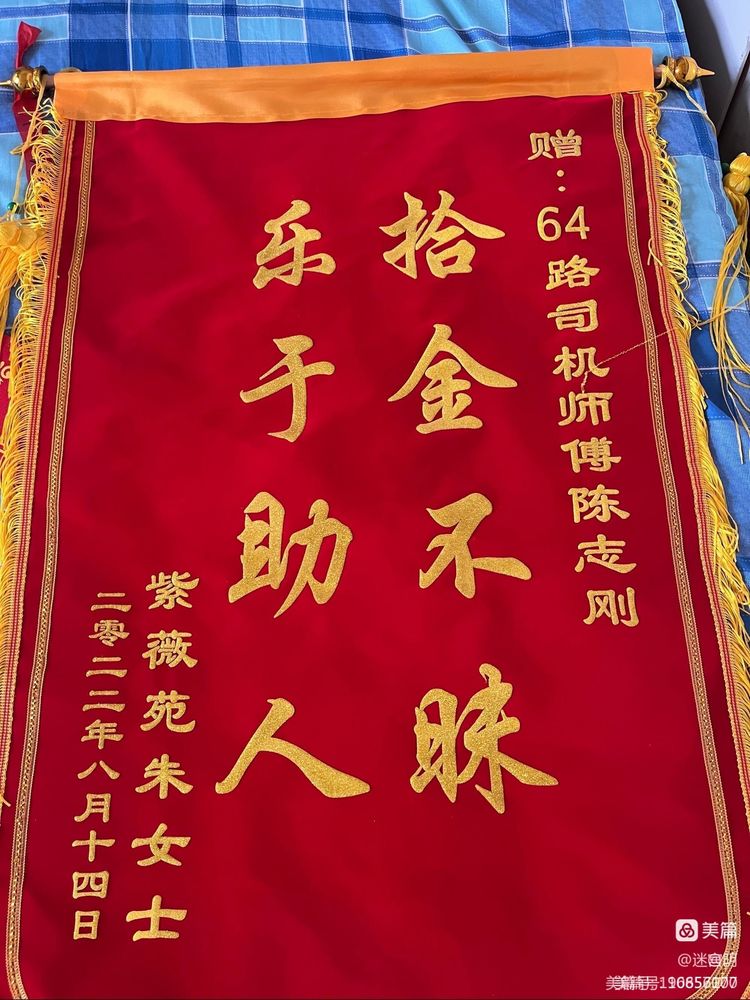 赠：64路司机师傅陈志刚
拾金不昧
乐于助人
紫薇苑朱女士
二零二二年八月十四日
美篇